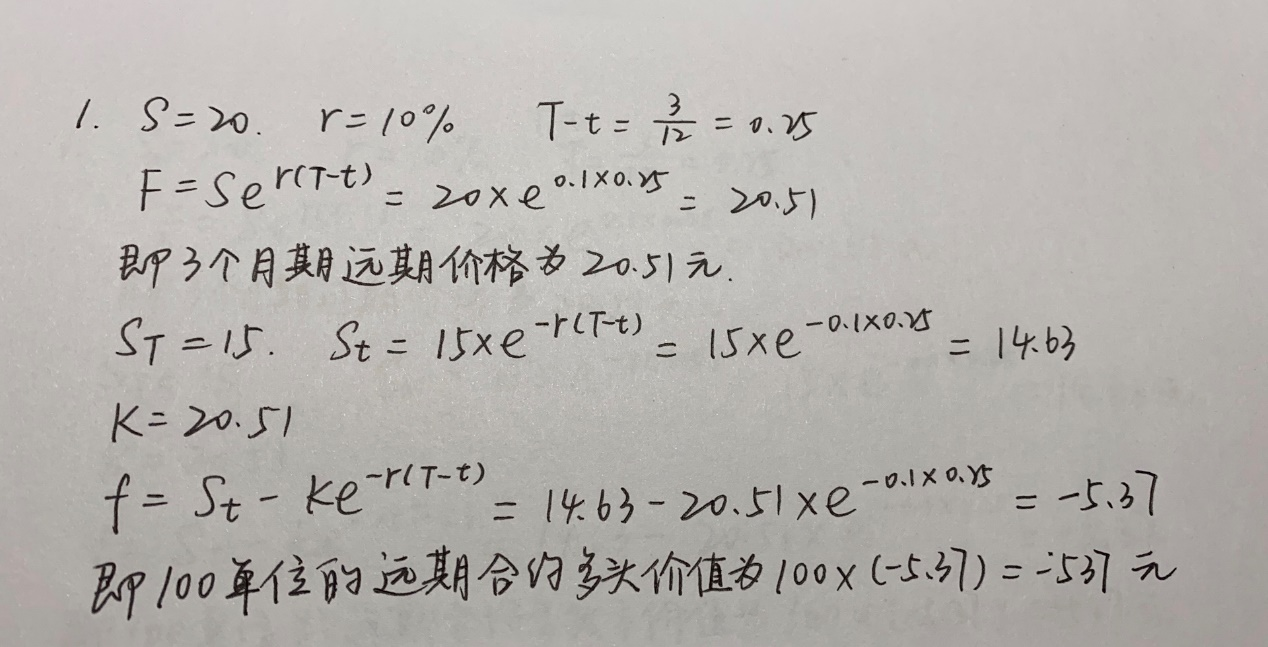 1. S=20. r=10% T-t=3/12=0.25
F=Se^{r(T-t)}=20×e^{0.1×0.25}=20.51
即3个月期远期价格为20.51元.
S_T=15. S_t=15×e^{-r(T-t)}=15×e^{-0.1×0.25}=14.63
K=20.51
f=S_t-Ke^{-r(T-t)}=14.63-20.51×e^{-0.1×0.25}=-5.37
即100单位的远期合约多头价值为100×(-5.37)=-537元